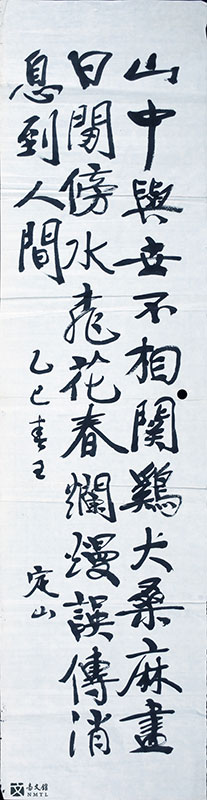 山中與世不相関鷄犬桑麻畫
日閒傍水飛花春爛熳誤傳消
息到人間
乙巳春王
定山
臺文館
NMTL